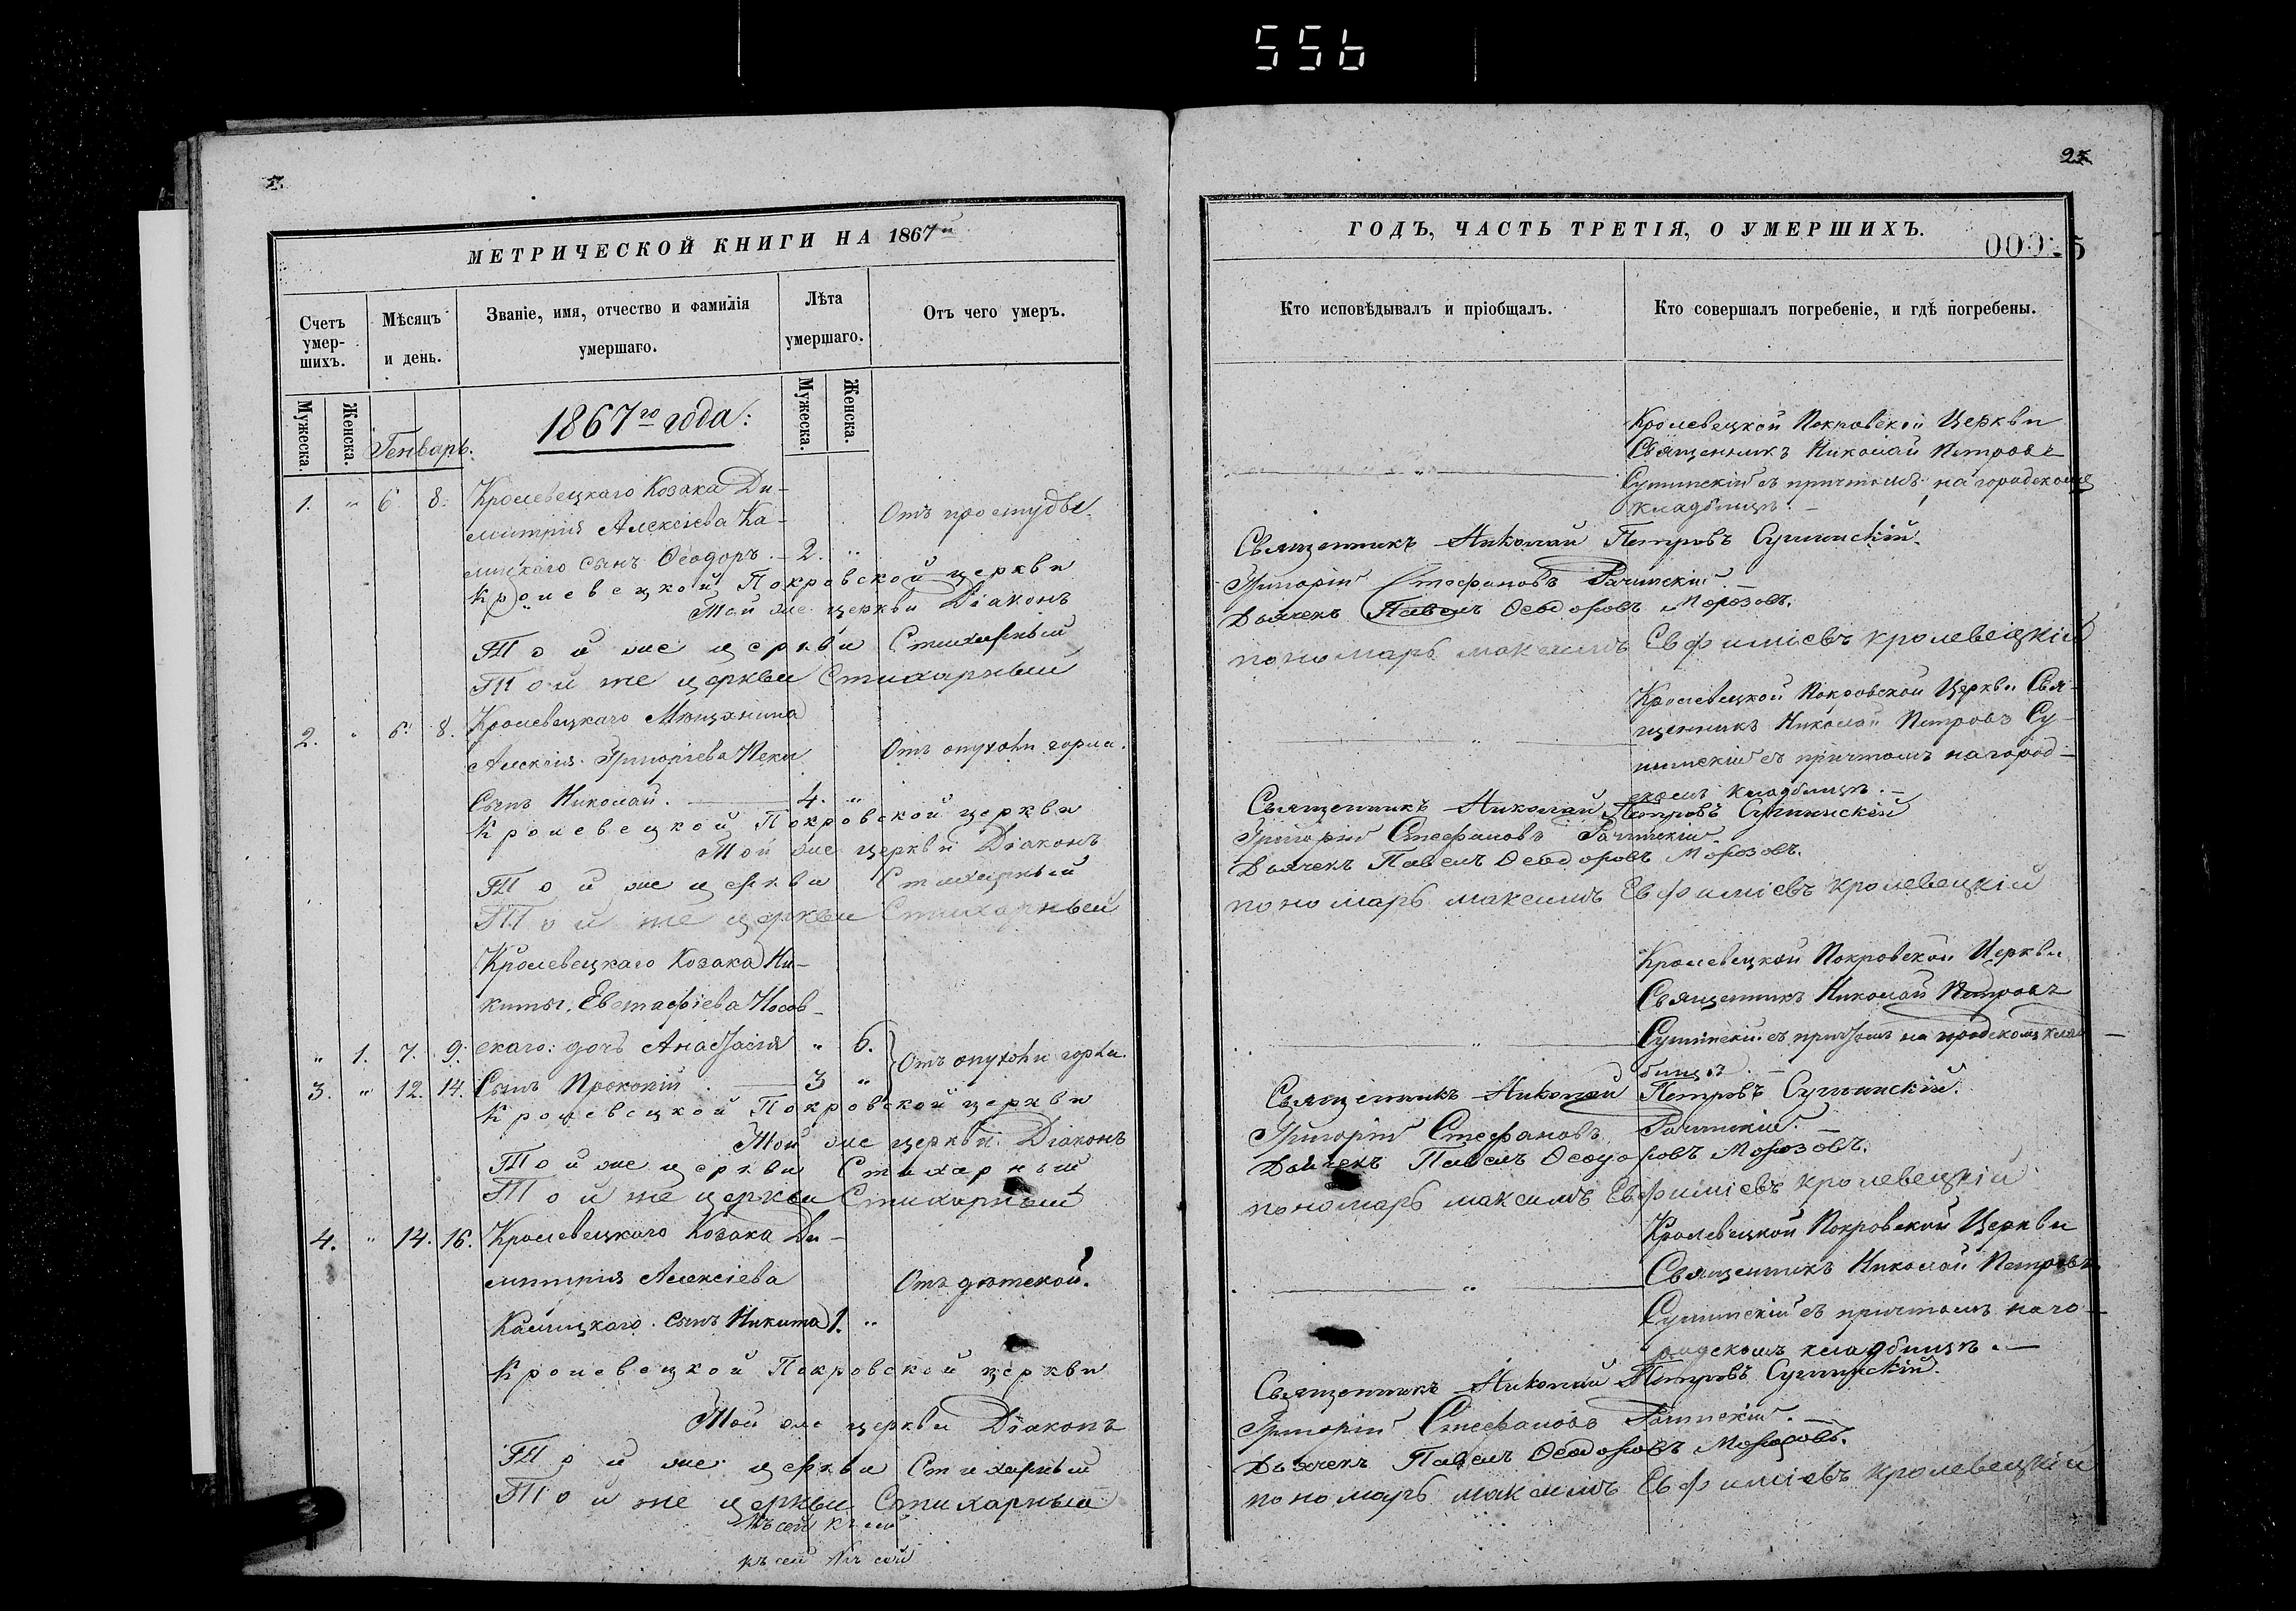 556
25
МЕТРИЧЕСКОЙ КНИГИ НА 1867й
Счетъ умер-шихъ.
Мѣсяцъ и день.
Званіе, имя, отчество и фамилія умершаго.
Лѣта умершаго.
Отъ чего умеръ.
Мужеска.
Женска.
Генварь.
1867го года:
Мужеска.
Женска.
1. " 6 8. Кролевецкаго Козака Ди-
митрія Алексіева Ка- Отъ простуды.
сынъ Ѳеодоръ. — 2. "
Кролевецкой Покровской церкви
Той же церкви Діаконъ
Той же церкви Стихарный
Той же церкви Стихарный
2. " 6. 8. Кролевецкаго Мѣщанина
Алексія Григоріева Отъ опухоли горла.
Сынъ Николай. — 4. "
Кролевецкой Покровской церкви
Той же церкви Діаконъ
Той же церкви Стихарный
Той же церкви Стихарный
Кролевецкаго Козака Ни-
киты Евстафіева Носов-
" 1. 7. 9. скаго: дочь Анастасія " 6. Отъ опухоли горла.
3. " 12. 14. Сынъ Прокопій — 3 "
Кролевецкой Покровской церкви
Той же церкви Діаконъ
Той же церкви Стихарный
Той же церкви Стихарный
4. " 14. 16. Кролевецкаго Козака Ди-
митрія Алексіева Отъ дѣтской.
сынъ Никита 1. "
Кролевецкой Покровской церкви
Той же церкви Діаконъ
Той же церкви Стихарный
Той же церкви Стихарный
къ сей
къ сей
ГОДЪ, ЧАСТЬ ТРЕТІЯ, О УМЕРШИХЪ.
000 5
Кто исповѣдывалъ и пріобщалъ.
Кто совершалъ погребеніе, и гдѣ погребены.
Кролевецкой Покровской Церкви
Священникъ Николай Петровъ
Сушинскій съ причтомъ, на городскомъ
кладбищѣ. —
Священникъ Николай Петровъ Сушинскій.
Григорій Стефановъ Рачинскій. —
Дьячекъ Павелъ Ѳеодоровъ Морозовъ.
пономарь максимъ Евфиміевъ кролевецкій
Кролевецкой Покровской Церкви Свя-
щенникъ Николай Петровъ Су-
шинскій съ причтомъ на город-
скомъ кладбищѣ. —
Священникъ Николай Петровъ Сушинскій
Григорій Стефановъ Рачинскій
Дьячекъ Павелъ Ѳеодоровъ Морозовъ.
пономарь максимъ Евфиміевъ кролевецкій
Кролевецкой Покровской Церкви
Священникъ Николай Петровъ
Сушинскій съ причтомъ на городскомъ клад-
бищѣ. —
Священникъ Николай Петровъ Сушинскій.
Григорій Стефановъ Рачинскій. —
Дьячекъ Павелъ Ѳеодоровъ Морозовъ.
пономарь максимъ Евфиміевъ кролевецкій
Кролевецкой Покровской Церкви
Священникъ Николай Петровъ
Сушинскій съ причтомъ на го-
родскомъ кладбищѣ. —
Священникъ Николай Петровъ Сушинскій.
Григорій Стефановъ Рачинскій. —
Дьячекъ Павелъ Ѳеодоровъ Морозовъ.
пономарь максимъ Евфиміевъ кролевецкій